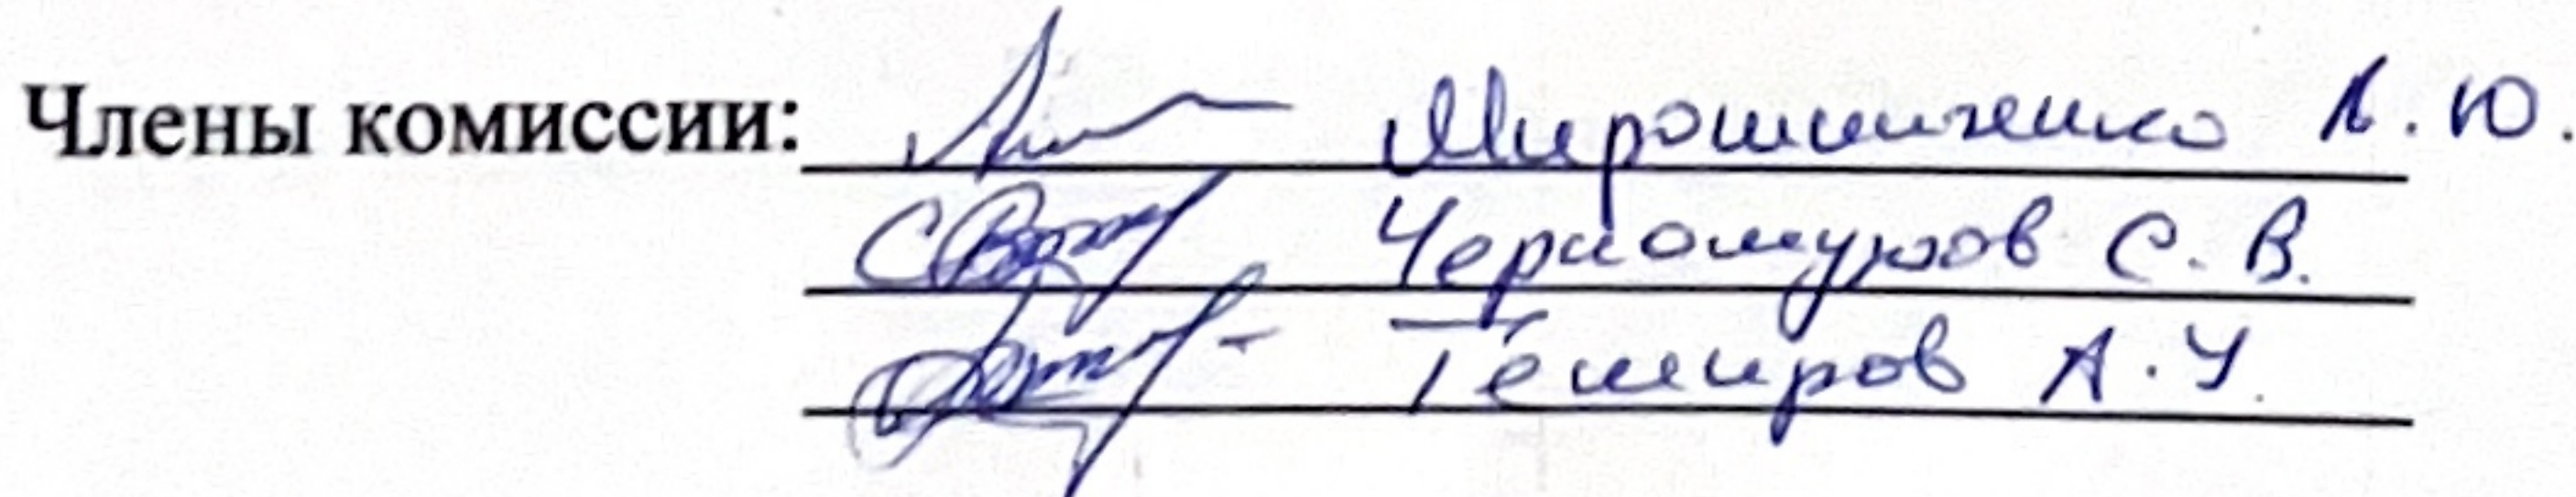 Члены комиссии: Мирошниченко А. Ю.
Черномуров С. В.
Темиров А. У.